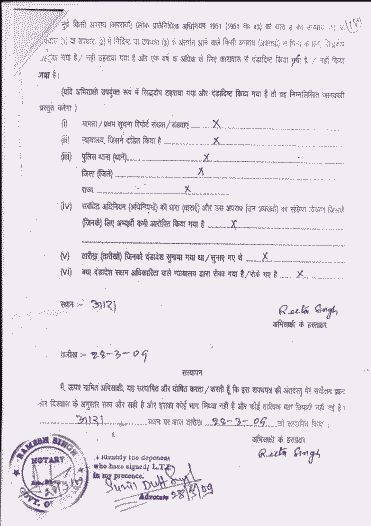 मुझे किसी अपराध (अपराधों) (लोक प्रतिनिधित्व अधिनियम 1951 (1951 का 43) की धारा 8 की उपधारा
गया है / नहीं ठहराया गया है और एक वर्ष या अधिक के लिए कारावास से दंडादिष्ट किया गया है / नहीं किया
गया है।
(यदि अभिसाक्षी उपर्युक्त रूप में सिद्धदोष ठहराया गया और दंडादिष्ट किया गया है तो वह निम्नलिखित जानकारी
प्रस्तुत करेगा)
(i) मामला/प्रथम सूचना रिपोर्ट संख्या/संख्याएं X
(ii) न्यायालय, जिसने दंडित किया है X
(iii) पुलिस थाना (थाने) X
जिला (जिले) X
राज्य X
(iv) संबंधित अधिनियम (अधिनियमों) की धारा (धाराएं) और उस अपराध (उन अपराधों) का संक्षिप्त विवरण जिसके
(जिनके) लिए अभ्यर्थी को आरोपित किया गया है X
(v) तारीख (तारीखें) जिनको दंडादेश सुनाया गया था/सुनाए गए थे X
(vi) क्या दंडादेश सक्षम अधिकारिता वाले न्यायालय द्वारा रोका गया है/रोके गए हैं X
स्थान :- आरा
Reeta Singh
अभिसाक्षी के हस्ताक्षर
तारीख :- 28-3-09
सत्यापन
मैं, ऊपर नामित अभिसाक्षी, यह सत्यापित और घोषित करता/करती हूँ कि इस शपथपत्र की अंतर्वस्तु मेरे सर्वोत्तम ज्ञान
और विश्वास के अनुसार सत्य और सही है और इसका कोई भाग मिथ्या नहीं है और कोई तात्विक बात छिपायी नहीं गई है।
आरा स्थान पर आज तारीख 28-3-09 को सत्यापित किया।
अभिसाक्षी के हस्ताक्षर
Reeta Singh
RAMESH SINGH
NOTARY
GOVT. OF
I identify the deponent
who have signed/L.T.I.
in my presence.
Advocate 28/3/09